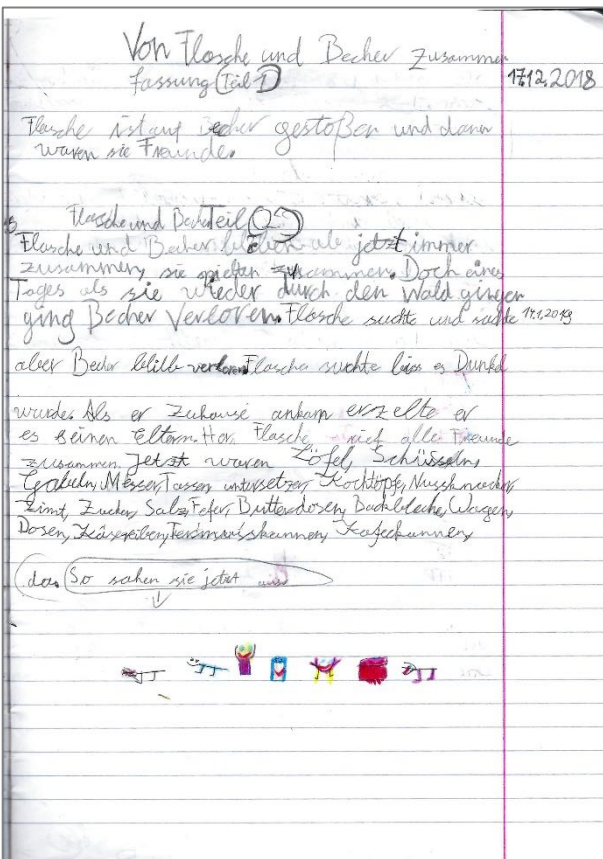 Von Flasche und Becher Zusammen
fassung (Teil 1)
17.12.2018
Flasche ist auf Becher gestoßen und dann
waren sie Freunde.
Flasche und Becher Teil 2
Flasche und Becher blieben ab jetzt immer
zusammen, sie spielten zusammen. Doch eines
Tages als sie wieder durch den Wald gingen
ging Becher Verloren. Flasche suchte und suchte
17.1.2019
aber Becher blibb verloren Flasche suchte bis es Dunkel
wurde. Als er Zuhause ankam erzelte er
es seinen Eltern. Flasche rief alle Freunde
zusammen. Jetzt waren Löfel, Schüsseln,
Gabeln, Messer, Tassen untersetzer, Kochtöpfe, Nussknacker
Zimt, Zucker, Salz, Fefer, Butterdosen, Backbleche, Wagen,
Dosen, Käsereiben, Termousskannen, Kafeekannen,
da. So sahen sie jetzt aus